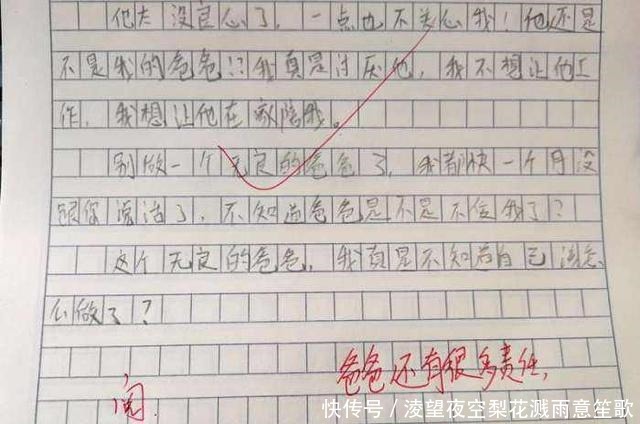 他太没良心了，一点也不关心我！他还是
不是我的爸爸!?我真是讨厌他，我不想让他工
作，我想让他在家陪我。
别做一个无良的爸爸了，我都快一个月没
跟你说话了，不知道爸爸是不是不信我了？
这个无良的爸爸，我真是不知道自己该怎
么做了？
爸爸还有很多责任，
阅.
快传号／淩望夜空梨花溅雨意笙歌